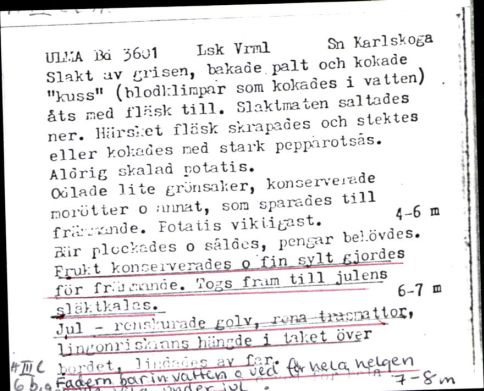 ULMA Bd 3601 Lsk Vrml Sn Karlskoga
Slakt av grisen, bakade palt och kokade
"kuss" (blodklimpar som kokades i vatten)
åts med fläsk till. Slaktmaten saltades
ner. Härsket fläsk skrapades och stektes
eller kokades med stark pepparotsås.
Aldrig skalad potatis.
Odlade lite grönsaker, konserverade
morötter o annat, som sparades till
främmande. Potatis viktigast. 4-6 m
Bär plockades o såldes, pengar behövdes.
Frukt konserverades o fin sylt gjordes
för främmande. Togs fram till julens
släktkalas. 6-7 m
Jul - renskurade golv, rena trasmattor,
lingonriskrans hängde i taket över
bordet, lindades av far.
Fadern bar in vatten o ved för hela helgen
7-8 m